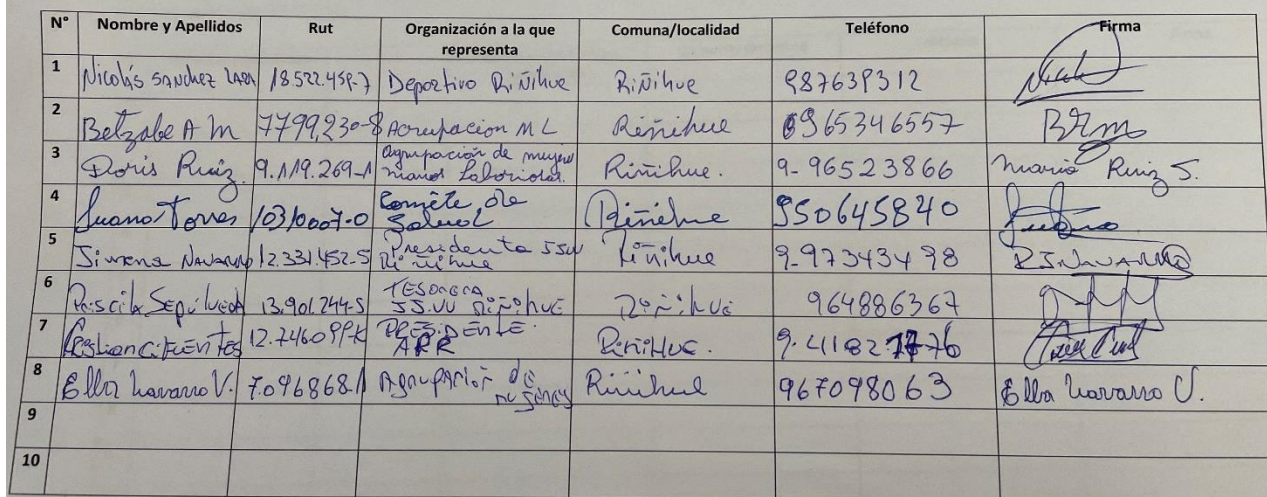 N° Nombre y Apellidos Rut Organización a la que representa Comuna/localidad Teléfono Firma
1 Nicolás Sanchez Lara 18.522.459-7 Deportivo Riñihue Riñihue 987639312
2 Betzabe A M 7799,230-8 Acrupacion ML Reñihue 0965346557 BRM
3 Doris Ruiz. 9.119.269-1 agrupación de mujeres manos Laboriosas. Riñihue. 9-96523866 Mario Ruiz S.
4 Juana Torres 10310007-0 Comite de Salud Riñihue 950645840
5 Jimena Navarro 12.331.452-5 Presidenta Riñihue Riñihue 9-97343498 RJNAVARRO
6 Priscila Sepúlveda 13.901.244-5 TESORERA JJ.VV Riñihue Riñihue 964886367
7 Cristian Cifuentes 12.746099-K PRESIDENTE. ARR RiñiHue. 9.4182
8 Elba Navarro V. 70968681 Agrupación de mujeres Riñihue 967098063 Elba Navarro V.
9
10